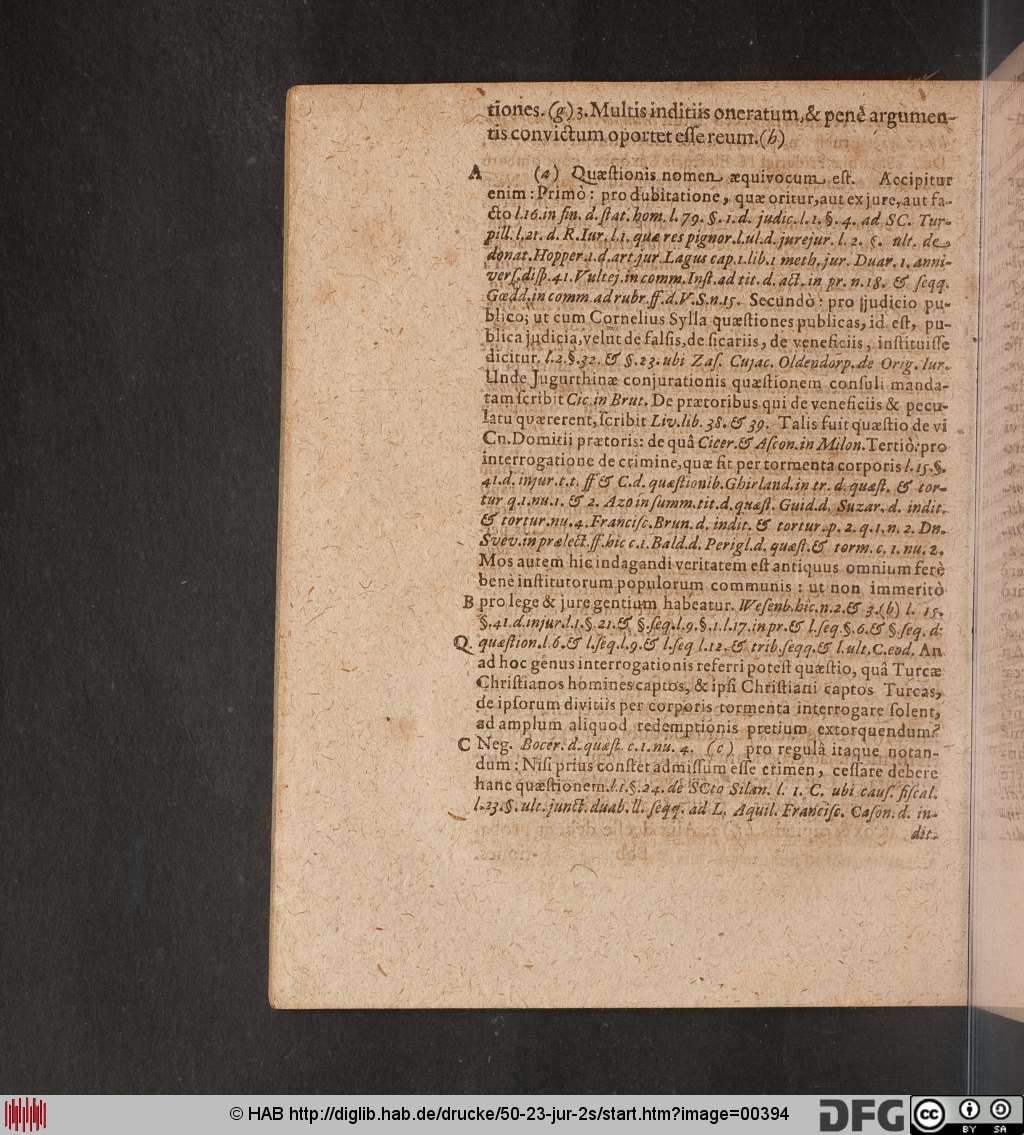 tiones. (g) 3. Multis inditiis oneratum, & penè argumen-
tis convictum oportet esse reum. (h)
A (a) Quæstionis nomen æquivocum est. Accipitur
enim: Primò: pro dubitatione, quæ oritur, aut ex jure, aut fa-
cto l. 16. in fin. d. stat. hom. l. 79. §. 1. d. judic. l. 1. §. 4. ad SC. Tur-
pill. l. 21. d. R. Iur. l. 1. quæ res pignor. l. ul. d. jurejur. l. 2. §. ult. de
donat. Hopper. 1. d. art. jur. Lagus cap. 1. lib. 1 meth. jur. Duar. 1. anni-
vers. disp. 41. Vultej. in comm. Inst. ad tit. d. act. in pr. n. 18. & seqq.
Gœdd. in comm. ad rubr. ff. d. V. S. n. 15. Secundò: pro judicio pu-
blico; ut cum Cornelius Sylla quæstiones publicas, id est, pu-
blica judicia, velut de falsis, de sicariis, de veneficiis, instituisse
dicitur. l. 2. §. 32. & §. 23. ubi Zas. Cujac. Oldendorp. de Orig. Iur.
Unde Jugurthinæ conjurationis quæstionem consuli manda-
tam scribit Cic. in Brut. De prætoribus qui de veneficiis & pecu-
latu quærerent, scribit Liv. lib. 38. & 39. Talis fuit quæstio de vi
Cn. Domitii prætoris: de quâ Cicer. & Ascon. in Milon. Tertiò: pro
interrogatione de crimine, quæ fit per tormenta corporis l. 15. §.
41. d. injur. t. t. ff & C. d. quæstionib. Ghirland. in tr. d. quæst. & tor-
tur q. 1. nu. 1. & 2. Azo in summ. tit. d. quæst. Guid. d. Suzar. d. indit.
& tortur. nu. 4. Francisc. Brun. d. indit. & tortur. p. 2. q. 1. n. 2. Dn.
Svev. in prælect. ff. hic c. 1. Bald. d. Perigl. d. quæst. & torm. c. 1. nu. 2.
Mos autem hic indagandi veritatem est antiquus omnium ferè
benè institutorum populorum communis: ut non immeritò
B pro lege & jure gentium habeatur. Wesenb. hic. n. 2. & 3. (b) l. 15.
§. 41. d. injur. l. 1. §. 21. & §. seq. l. 9. §. 1. l. 17. in pr. & l. seq. §. 6. & §. seq. d.
Q. quæstion. l. 6. & l. seq. l. 9. & l. seq l. 12. & trib. seqq. & l. ult. C. eod. An
ad hoc genus interrogationis referri potest quæstio, quâ Turcæ
Christianos homines captos, & ipsi Christiani captos Turcas,
de ipsorum divitiis per corporis tormenta interrogare solent,
ad amplum aliquod redemptionis pretium extorquendum?
C Neg. Bocer. d. quæst. c. 1. nu. 4. (c) pro regulâ itaque notan-
dum: Nisi prius constet admissum esse crimen, cessare debere
hanc quæstionem. l. 1. §. 24. de SCto Silan. l. 1. C. ubi caus. fiscal.
l. 23. §. ult. junct. duab. ll. seqq. ad L. Aquil. Francisc. Cason. d. in-
dit.
© HAB http://diglib.hab.de/drucke/50-23-jur-2s/start.htm?image=00394
DFG
cc BY SA